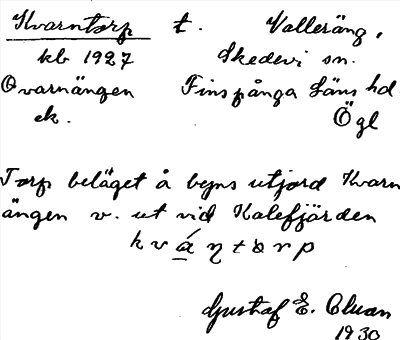 Kvarntorp t. Valleräng,
kb 1927 Skedevi sn.
Qvarnängen Finspånga Läns hd
ek. Ögl
Torp beläget å byns utjord Kvarn
ängen v. ut vid Kalefjärden
k v á ŋ t o r p
Gustaf E.
1930